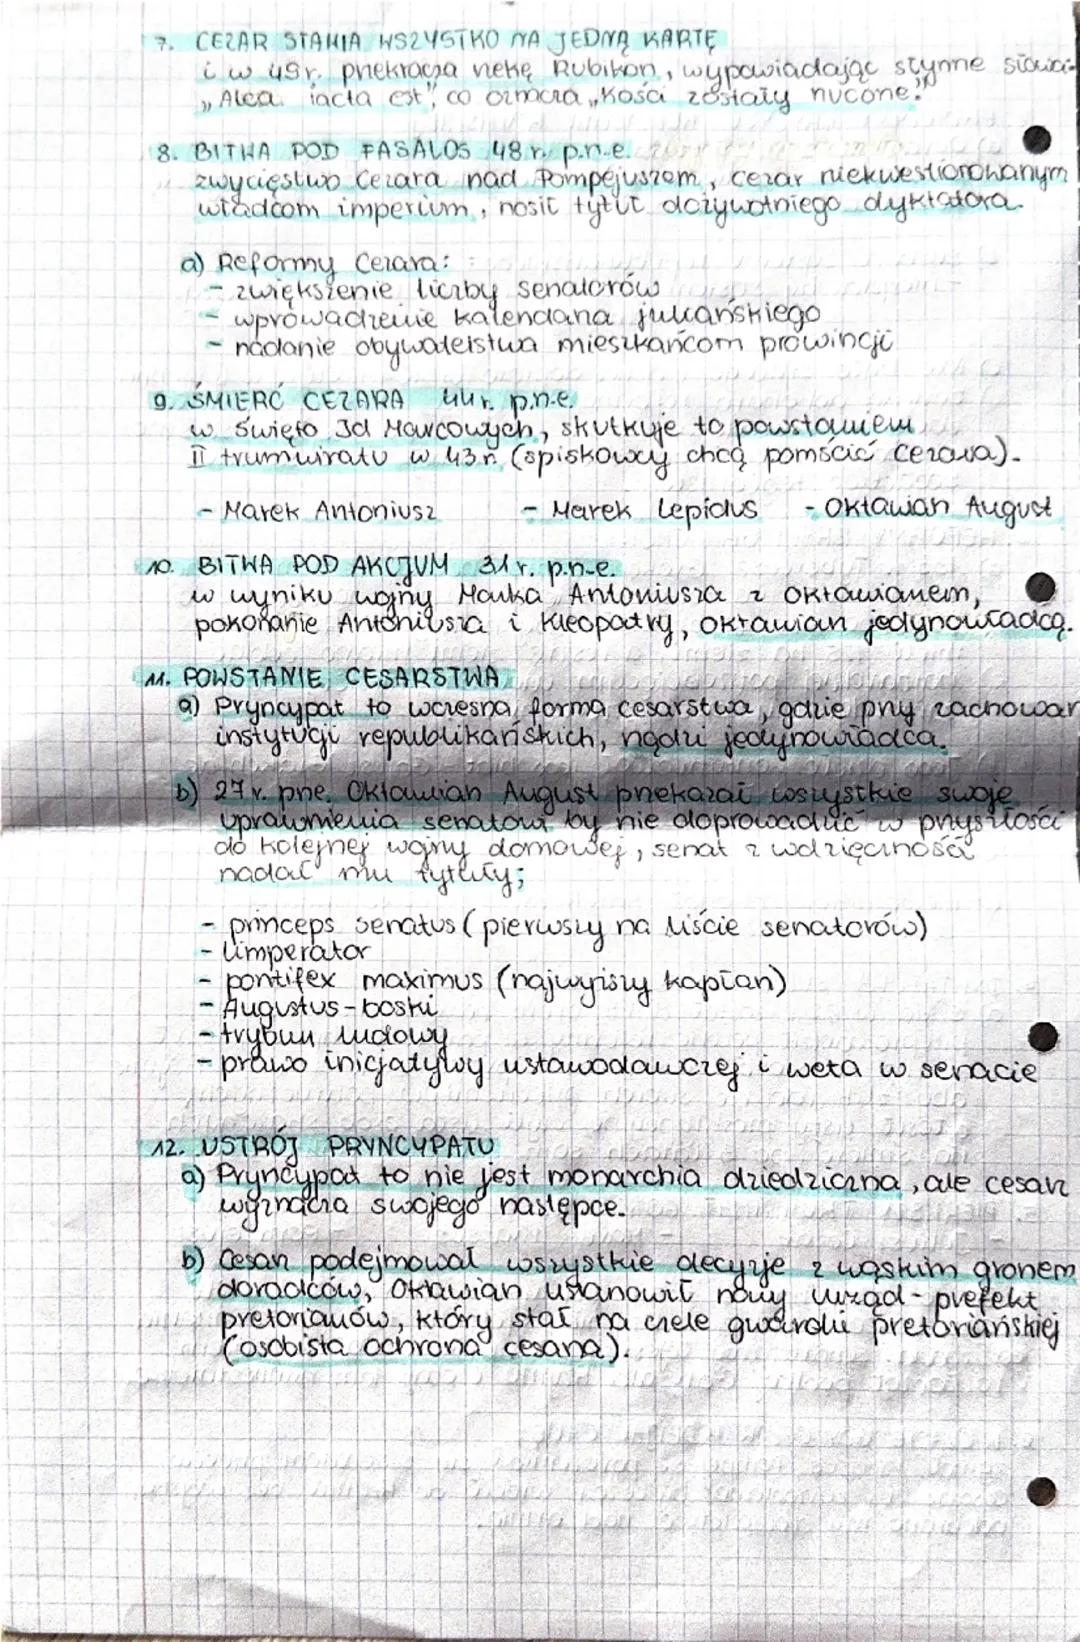 7. CEZAR STAWIA WSZYSTKO NA JEDNĄ KARTĘ
i w 49r. przekracza rzekę Rubikon, wypowiadając słynne słowa:
„Alea iacta est", co oznacza „Kości zostały rzucone."
8. BITWA POD FASALOS 48 r. p.n.e.
zwycięstwo Cezara nad Pompejuszem, cezar niekwestionowanym
władcom imperium, nosił tytuł dożywotniego dyktatora.
a) Reformy Cezara:
- zwiększenie liczby senatorów
- wprowadzenie kalendarza juliańskiego
- nadanie obywatelstwa mieszkańcom prowincji
9. ŚMIERĆ CEZARA 44r. p.n.e.
w święto Id Marcowych, skutkuje to powstaniem
II trumwiratu w 43r. (spiskowcy chcą pomścić Cezara).
- Marek Antoniusz - Marek Lepidus - Oktawian August
10. BITWA POD AKCJUM 31 r. p.n.e.
w wyniku wojny Marka Antoniusza z Oktawianem,
pokonanie Antoniusza i Kleopatry, Oktawian jedynowładcą.
11. POWSTANIE CESARSTWA
a) Pryncypat to wczesna forma cesarstwa, gdzie przy zachowan
instytucji republikańskich, rządzi jedynowładca.
b) 27 r. pne. Oktawian August przekazał wszystkie swoje
uprawnienia senatowi by nie doprowadzić w przyszłości
do kolejnej wojny domowej, senat z wdzięczności
nadał mu tytuły;
- princeps senatus (pierwszy na liście senatorów)
- imperator
- pontifex maximus (najwyższy kapłan)
- Augustus - boski
- trybun ludowy
- prawo inicjatywy ustawodawczej i weta w senacie
12. USTRÓJ PRYNCYPATU
a) Pryncypat to nie jest monarchia dziedziczna, ale cesarz
wyznacza swojego następce.
b) Cesarz podejmował wszystkie decyzje z wąskim gronem
doradców, Oktawian ustanowił nowy urząd - prefekt
pretorianów, który stał na czele gwardii pretoriańskiej
(osobista ochrona cesarza).